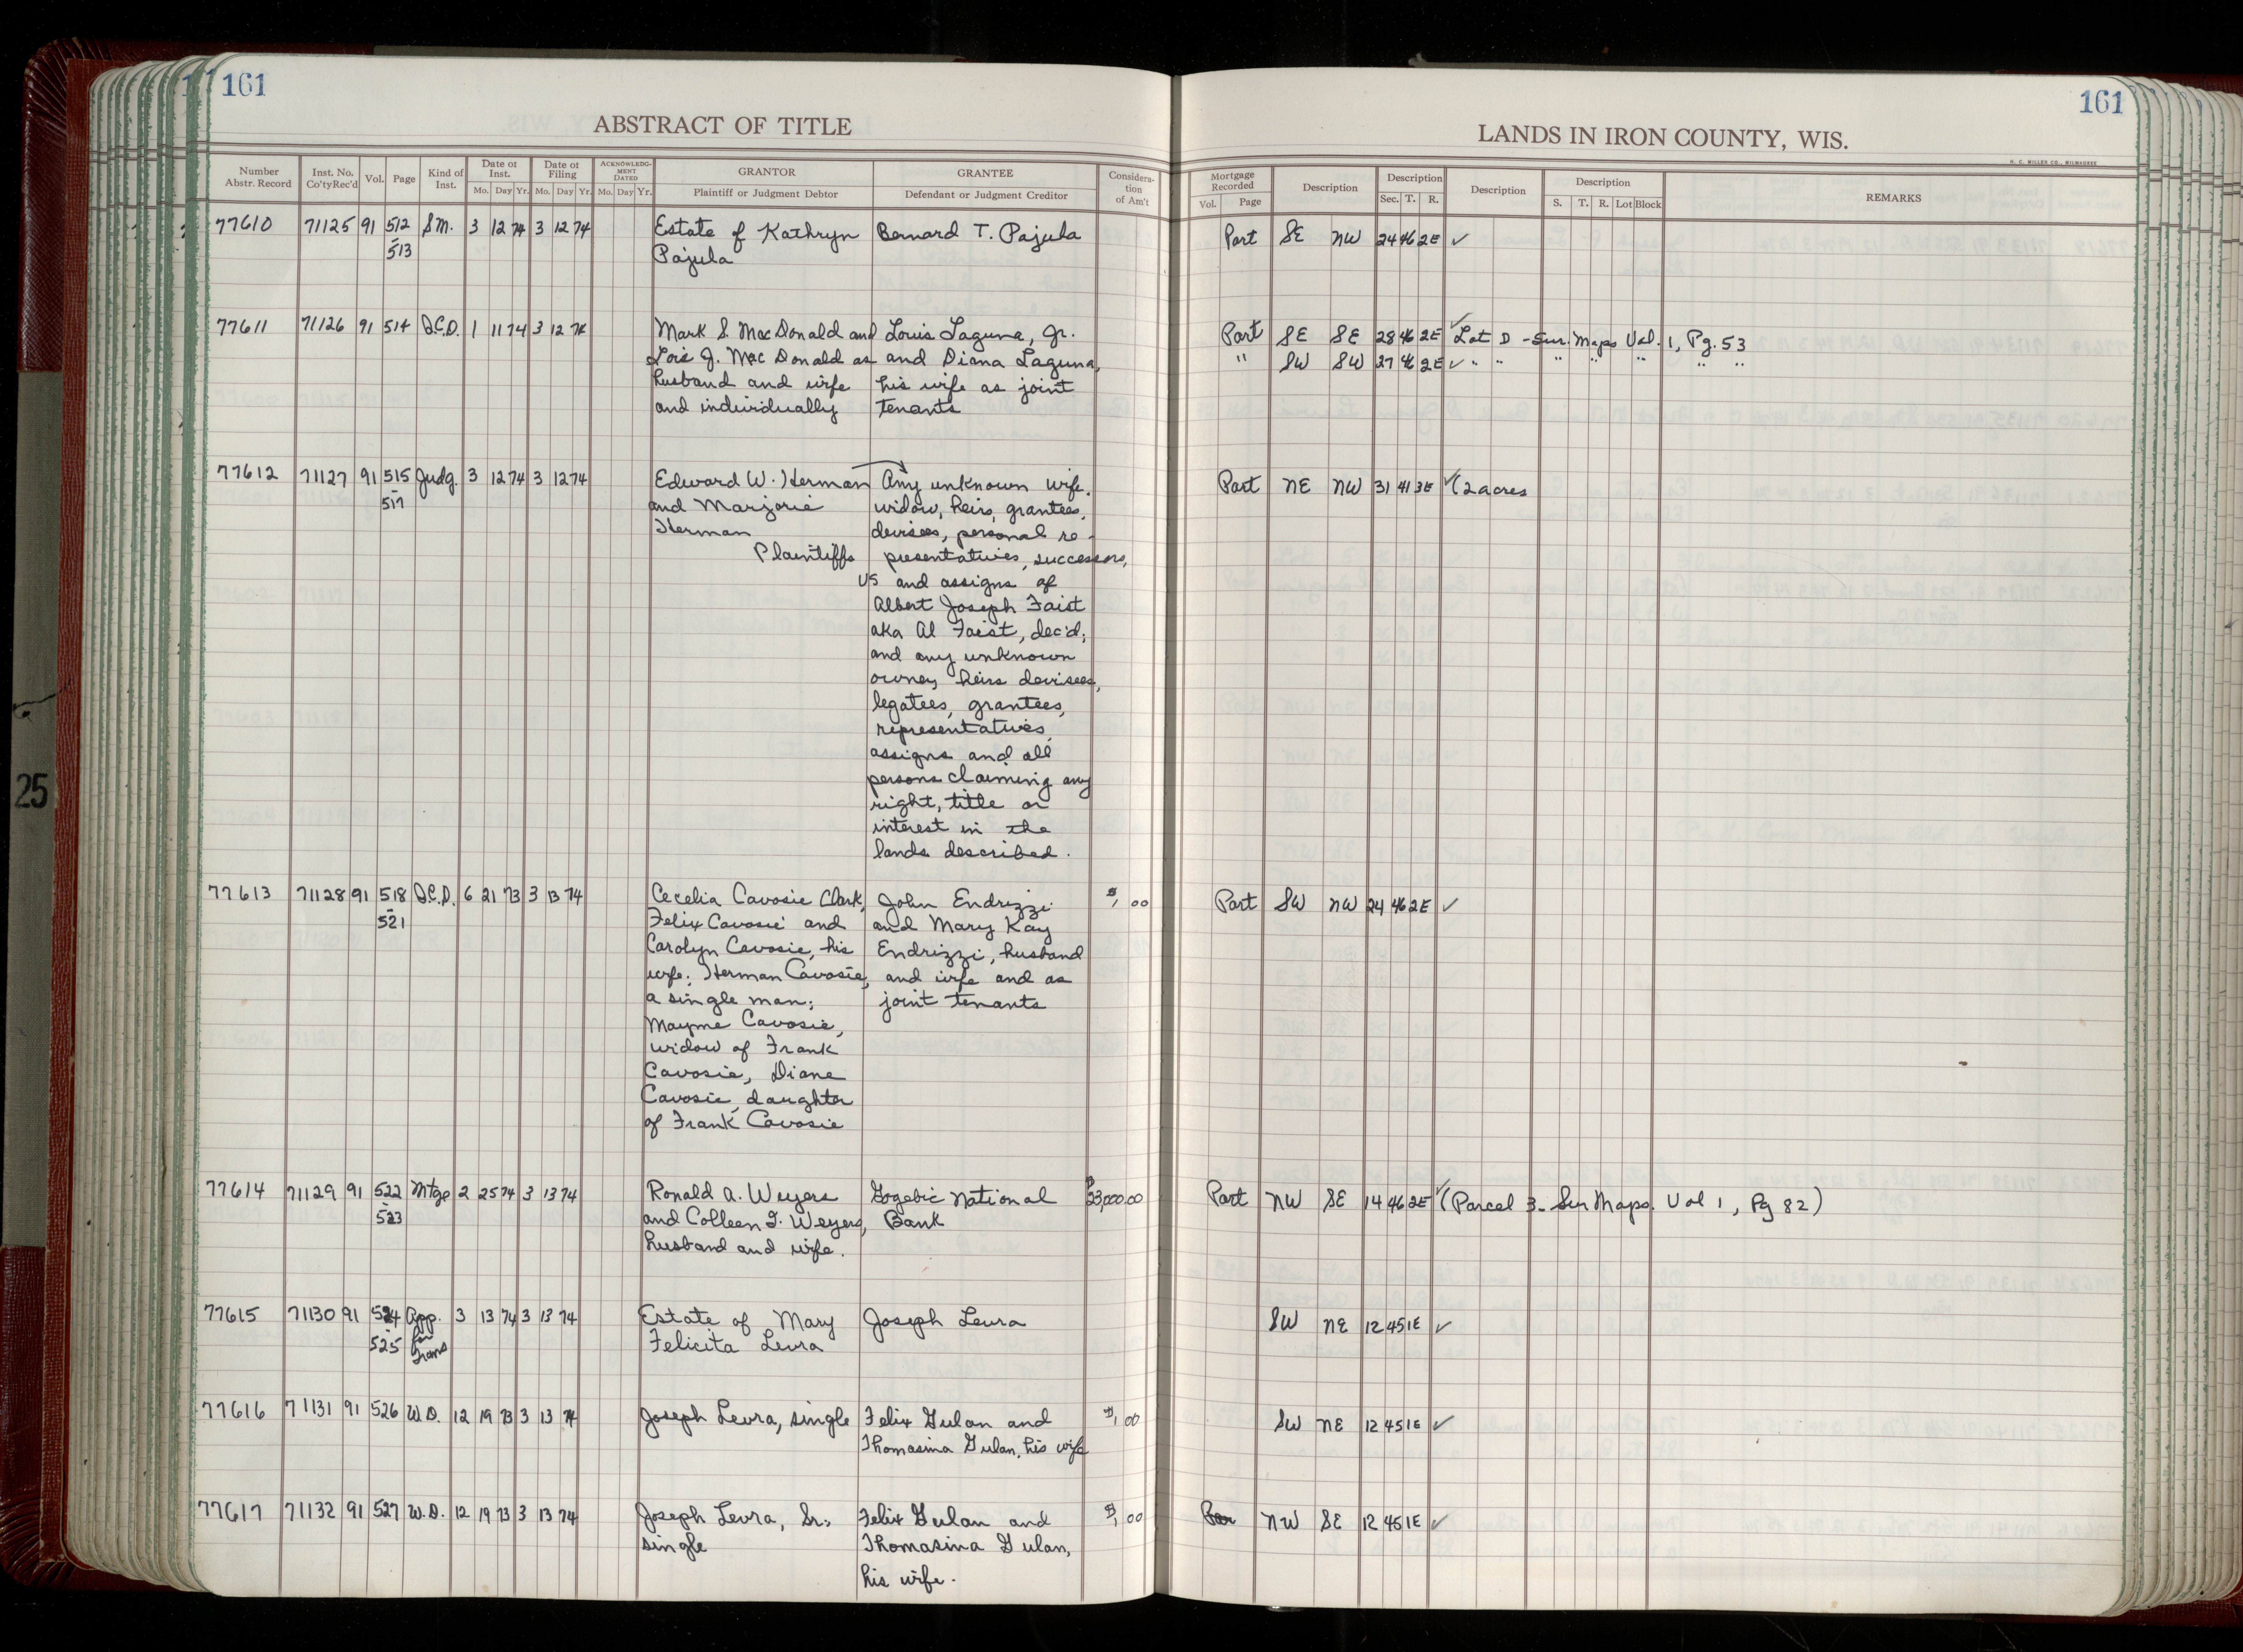 161
161
ABSTRACT OF TITLE
LANDS IN IRON COUNTY, WIS.
H. C. MILLER CO., MILWAUKEE
Number Abstr. Record Inst. No. Co'tyRec'd Vol. Page Kind of Inst. Date of Inst. Mo. Day Yr. Date of Filing Mo. Day Yr. ACKNOWLEDGMENT DATED Mo. Day Yr. GRANTOR Plaintiff or Judgment Debtor GRANTEE Defendant or Judgment Creditor Consideration of Am't Mortgage Recorded Vol. Page Description Description Sec. T. R. Description Description S. T. R. Lot Block REMARKS
77610 71125 91 512 S.M. 3 12 74 3 12 74 Estate of Kathryn Bernard T. Pajula Part SE NW 24 46 2E ✓
- 513 Pajula
77611 71126 91 514 Q.C.D. 1 11 74 3 12 74 Mark S. MacDonald and Louis Laguna, Jr. Part SE SE 28 46 2E ✓ Lot D - Sur. Maps Vol. 1, Pg. 53
Lois J. MacDonald as and Diana Laguna, " SW SW 27 46 2E ✓ " " " " " " "
husband and wife his wife as joint
and individually tenants
77612 71127 91 515 Judg. 3 12 74 3 12 74 Edward W. Herman Any unknown wife, Part NE NW 31 41 3E ✓ (2 acres
- 517 and Marjorie widow, heirs, grantees,
Herman devisees, personal re-
Plaintiffs presentatives, successors,
vs and assigns of
Albert Joseph Faist
aka Al Faist, dec'd;
and any unknown
owner, heirs devisees,
legatees, grantees,
representatives,
assigns and all
persons claiming any
right, title or
interest in the
lands described.
77613 71128 91 518 Q.C.D. 6 21 73 3 13 74 Cecelia Cavosie Clark, John Endrizzi $1.00 Part SW NW 24 46 2E ✓
- 521 Felix Cavosie and and Mary Kay
Carolyn Cavosie, his Endrizzi, husband
wife; Herman Cavosie, and wife and as
a single man; joint tenants
Mayme Cavosie,
widow of Frank
Cavosie, Diane
Cavosie, daughter
of Frank Cavosie
77614 71129 91 522 Mtge 2 25 74 3 13 74 Ronald A. Weyers Gogebic National $23,000.00 Part NW SE 14 46 2E ✓ (Parcel 3 - Sur Maps. Vol 1, Pg 82)
- 523 and Colleen J. Weyers, Bank
husband and wife.
77615 71130 91 524 App. 3 13 74 3 13 74 Estate of Mary Joseph Levra SW NE 12 45 1E ✓
- 525 for Trans Felicita Levra
77616 71131 91 526 W.D. 12 19 73 3 13 74 Joseph Levra, single Felix Gulan and $1.00 SW NE 12 45 1E ✓
Thomasina Gulan, his wife
77617 71132 91 527 W.D. 12 19 73 3 13 74 Joseph Levra, Sr., Felix Gulan and $1.00 NW SE 12 45 1E ✓
single Thomasina Gulan,
his wife.
25